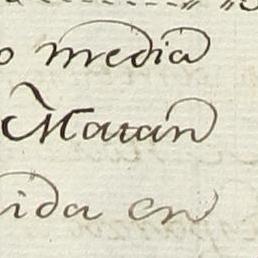 o media
Matan
ida en